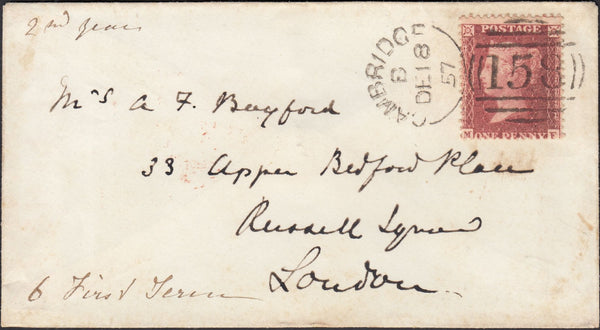 2nd year
CAMBRIDGE
B
DE 18
57
POSTAGE
158
ONE PENNY
Mrs A F. Bayford
33 Upper Bedford Place
Russell Square
London
6 First Term